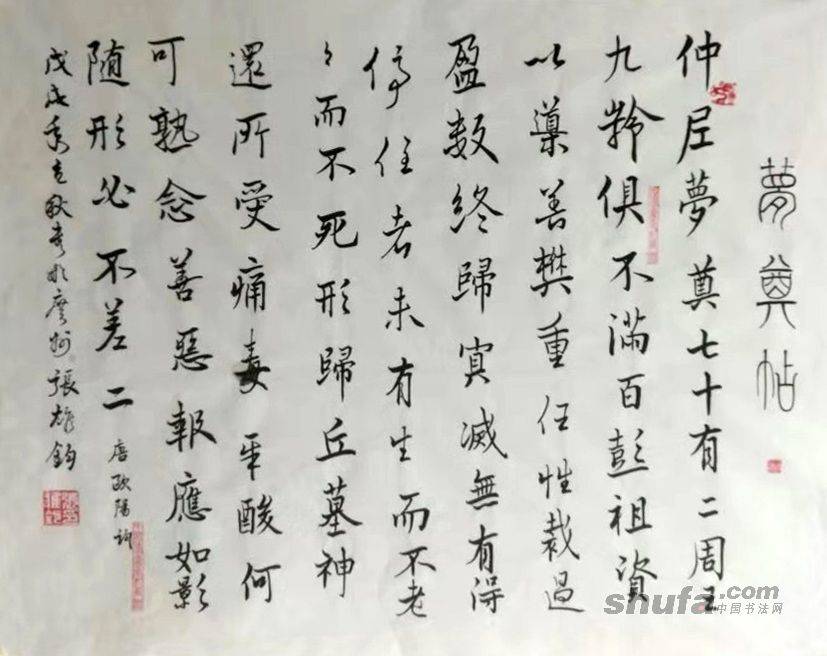 夢奠帖
仲尼夢奠七十有二周王
九齡俱不滿百彭祖資
以導善樊重任性裁過
盈数終歸冥滅無有得
停住者未有生而不老
々而不死形歸丘墓神
還所受痛毒辛酸何
可熟念善惡報應如影
随形必不差二
唐歐陽詢
戊戌立秋書於州張雄鈞
shufa.com
中国书法网